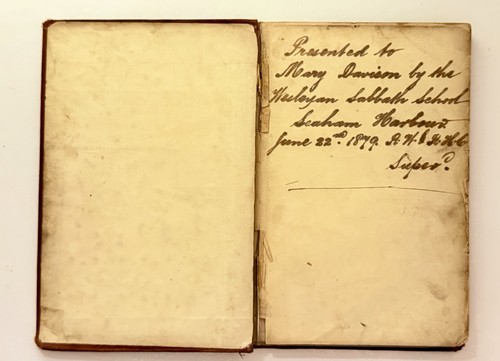 Presented to
Mary Davison by the
Wesleyan Sabbath School
Seaham Harbour
June 22nd 1879.